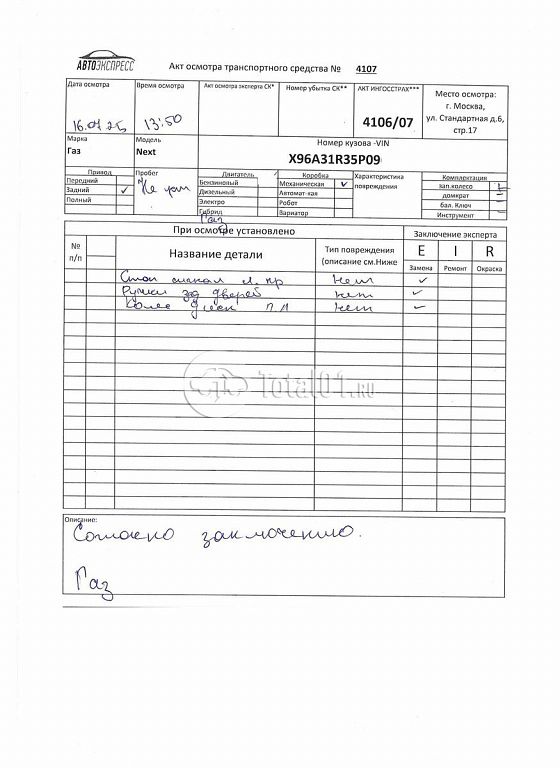 АВТОЭКСПРЕСС
Акт осмотра транспортного средства № 4107
Дата осмотра
Время осмотра
Акт осмотра эксперта СК*
Номер убытка СК**
АКТ ИНГОССТРАХ***
Место осмотра:
г. Москва,
ул. Стандартная д.6,
стр.17
13:50
4106/07
Марка
Модель
Номер кузова -VIN
Газ
Next
X96A31R35P09
Привод
Пробег
Двигатель
Коробка
Характеристика
повреждения
Комплектация
Передний
Бензиновый
Механическая
зап.колесо
Задний
Дизельный
Автомат-кая
домкрат
Полный
Электро
Робот
бал. Ключ
Гибрид
Вариатор
Инструмент
Газ
При осмотре установлено
Заключение эксперта
№
п/п
Название детали
Тип повреждения
(описание см.Ниже
E I R
Замена
Ремонт
Окраска
Стоп сигнал л. пр нет
Ручки зад дверей нет
нет
Total01.RU
Описание:
Согласно заключению.
Газ